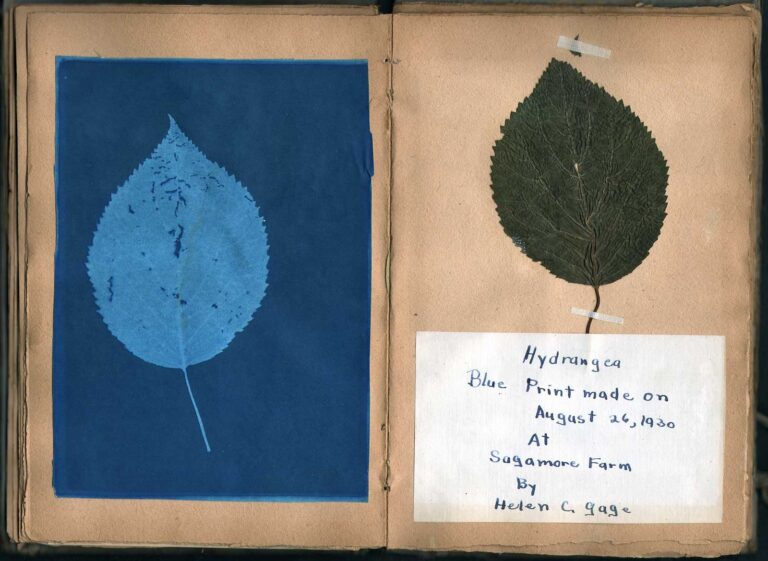 Hydrangea
Blue Print made on
August 26, 1930
At
Sagamore Farm
By
Helen C. Gage